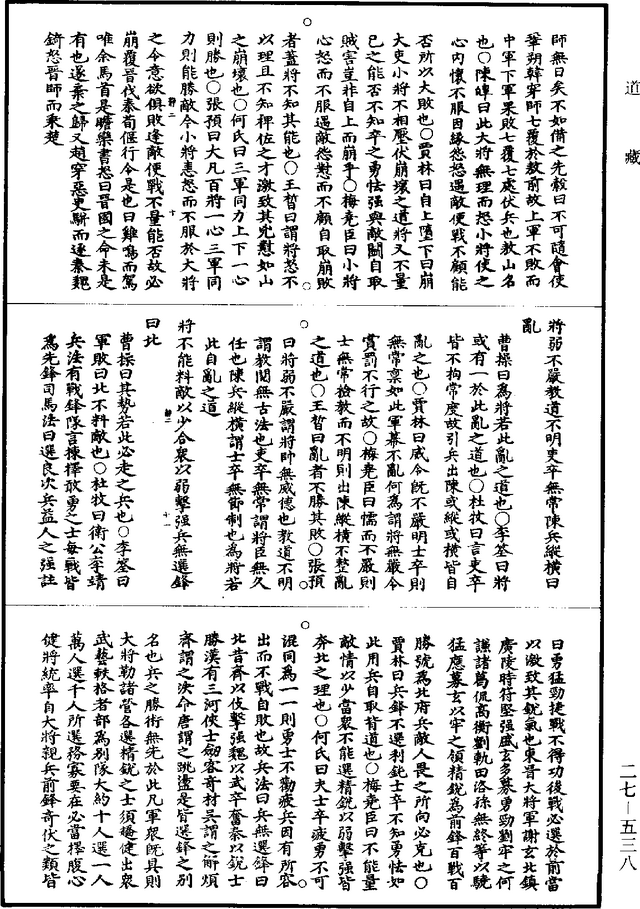 師無曰矣不如備之先縠曰不可隨會使
鞏朔韓穿師七覆於敖前故上軍不敗而
中軍下軍果敗七覆七處伏兵也敖山名
也○陳皥曰此大將無理而怒小將使之
心内懷不服因緣怨怒遇敵便戰不顧能
否所以大敗也○賈林曰自上墮下曰崩
大吏小將不相壓伏崩壞之道將又不量
已之能否不知卒之勇怯强與敵鬪自取
賊害豈非自上而崩乎○梅堯臣曰小將
心怒而不服遇敵怨懟而不顧自取崩敗
者蓋將不知其能也○王晳曰謂將怒不
以理且不知裨佐之才激致其兇懟如山
之崩壞也○何氏曰三軍同力上下一心
則勝也○張預曰大凡百將一心三軍同
力則能勝敵今小將恚怒而不服於大將
之令意欲俱敗逢敵便戰不量能否故必
崩覆晉伐秦荀偃行令是也曰雞鳴而駕
唯余馬首是瞻欒書怒曰晉國之命未是
有也遂棄之歸又趙穿惡臾駢而逐秦魏
錡怒晉師而乘楚
將弱不嚴教道不明吏卒無常陳兵縱横曰
亂
曹操曰為將若此亂之道也○李筌曰將
或有一於此亂之道也○杜牧曰言吏卒
皆不拘常度故引兵出陳或縱或横皆自
亂之也○賈林曰威令旣不嚴明士卒則
無常禀如此軍幕不亂何為謂將無嚴令
賞罰不行之故○梅堯臣曰懦而不嚴則
士無常檢教而不明則出陳縱横不整亂
之道也○王晳曰亂者不勝其敗○張預
曰將弱不嚴謂將帥無威德也教道不明
謂教閱無古法也吏卒無常謂將臣無久
任也陳兵縱横謂士卒無節制也為將若
此自亂之道
將不能料敵以少合衆以弱擊强兵無選鋒
曰北
曹操曰其勢若此必走之兵也○李筌曰
軍敗曰北不料敵也○杜牧曰衛公李靖
兵法有戰鋒隊言揀擇敢勇之士每戰皆
為先鋒司馬法曰選良次兵益人之强註
曰勇猛勁捷戰不得功後戰必選於前當
以激致其銳氣也東晉大將軍謝玄北鎮
廣陵時苻堅强盛玄多募勇勁劉牢之何
謙諸葛侃高衡劉軌田洛孫無終等以驍
猛應募玄以牢之領精銳為前鋒百戰百
勝號為北府兵敵人畏之所向必克也○
賈林曰兵鋒不選利鈍士卒不知勇怯如
此用兵自取背道也○梅堯臣曰不能量
敵情以少當衆不能選精銳以弱擊强皆
奔北之理也○何氏曰夫士卒疲勇不可
混同為一一則勇士不勸疲兵因有所容
出而不戰自敗也故兵法曰兵無選鋒曰
北昔齊以伎擊强魏以武卒奮秦以銳士
勝漢有三河俠士劔客奇材吳謂之解煩
齊謂之決命唐謂之跳盪是皆選鋒之别
名也兵之勝術無先於此凡軍衆旣具則
大將勒諸營各選精銳之士須趫健出衆
武藝軼格者部為别隊大約十人選一人
萬人選千人所選務寡要在必當擇腹心
健將統率自大將親兵前鋒奇伏之類皆
道藏
二七—五三八